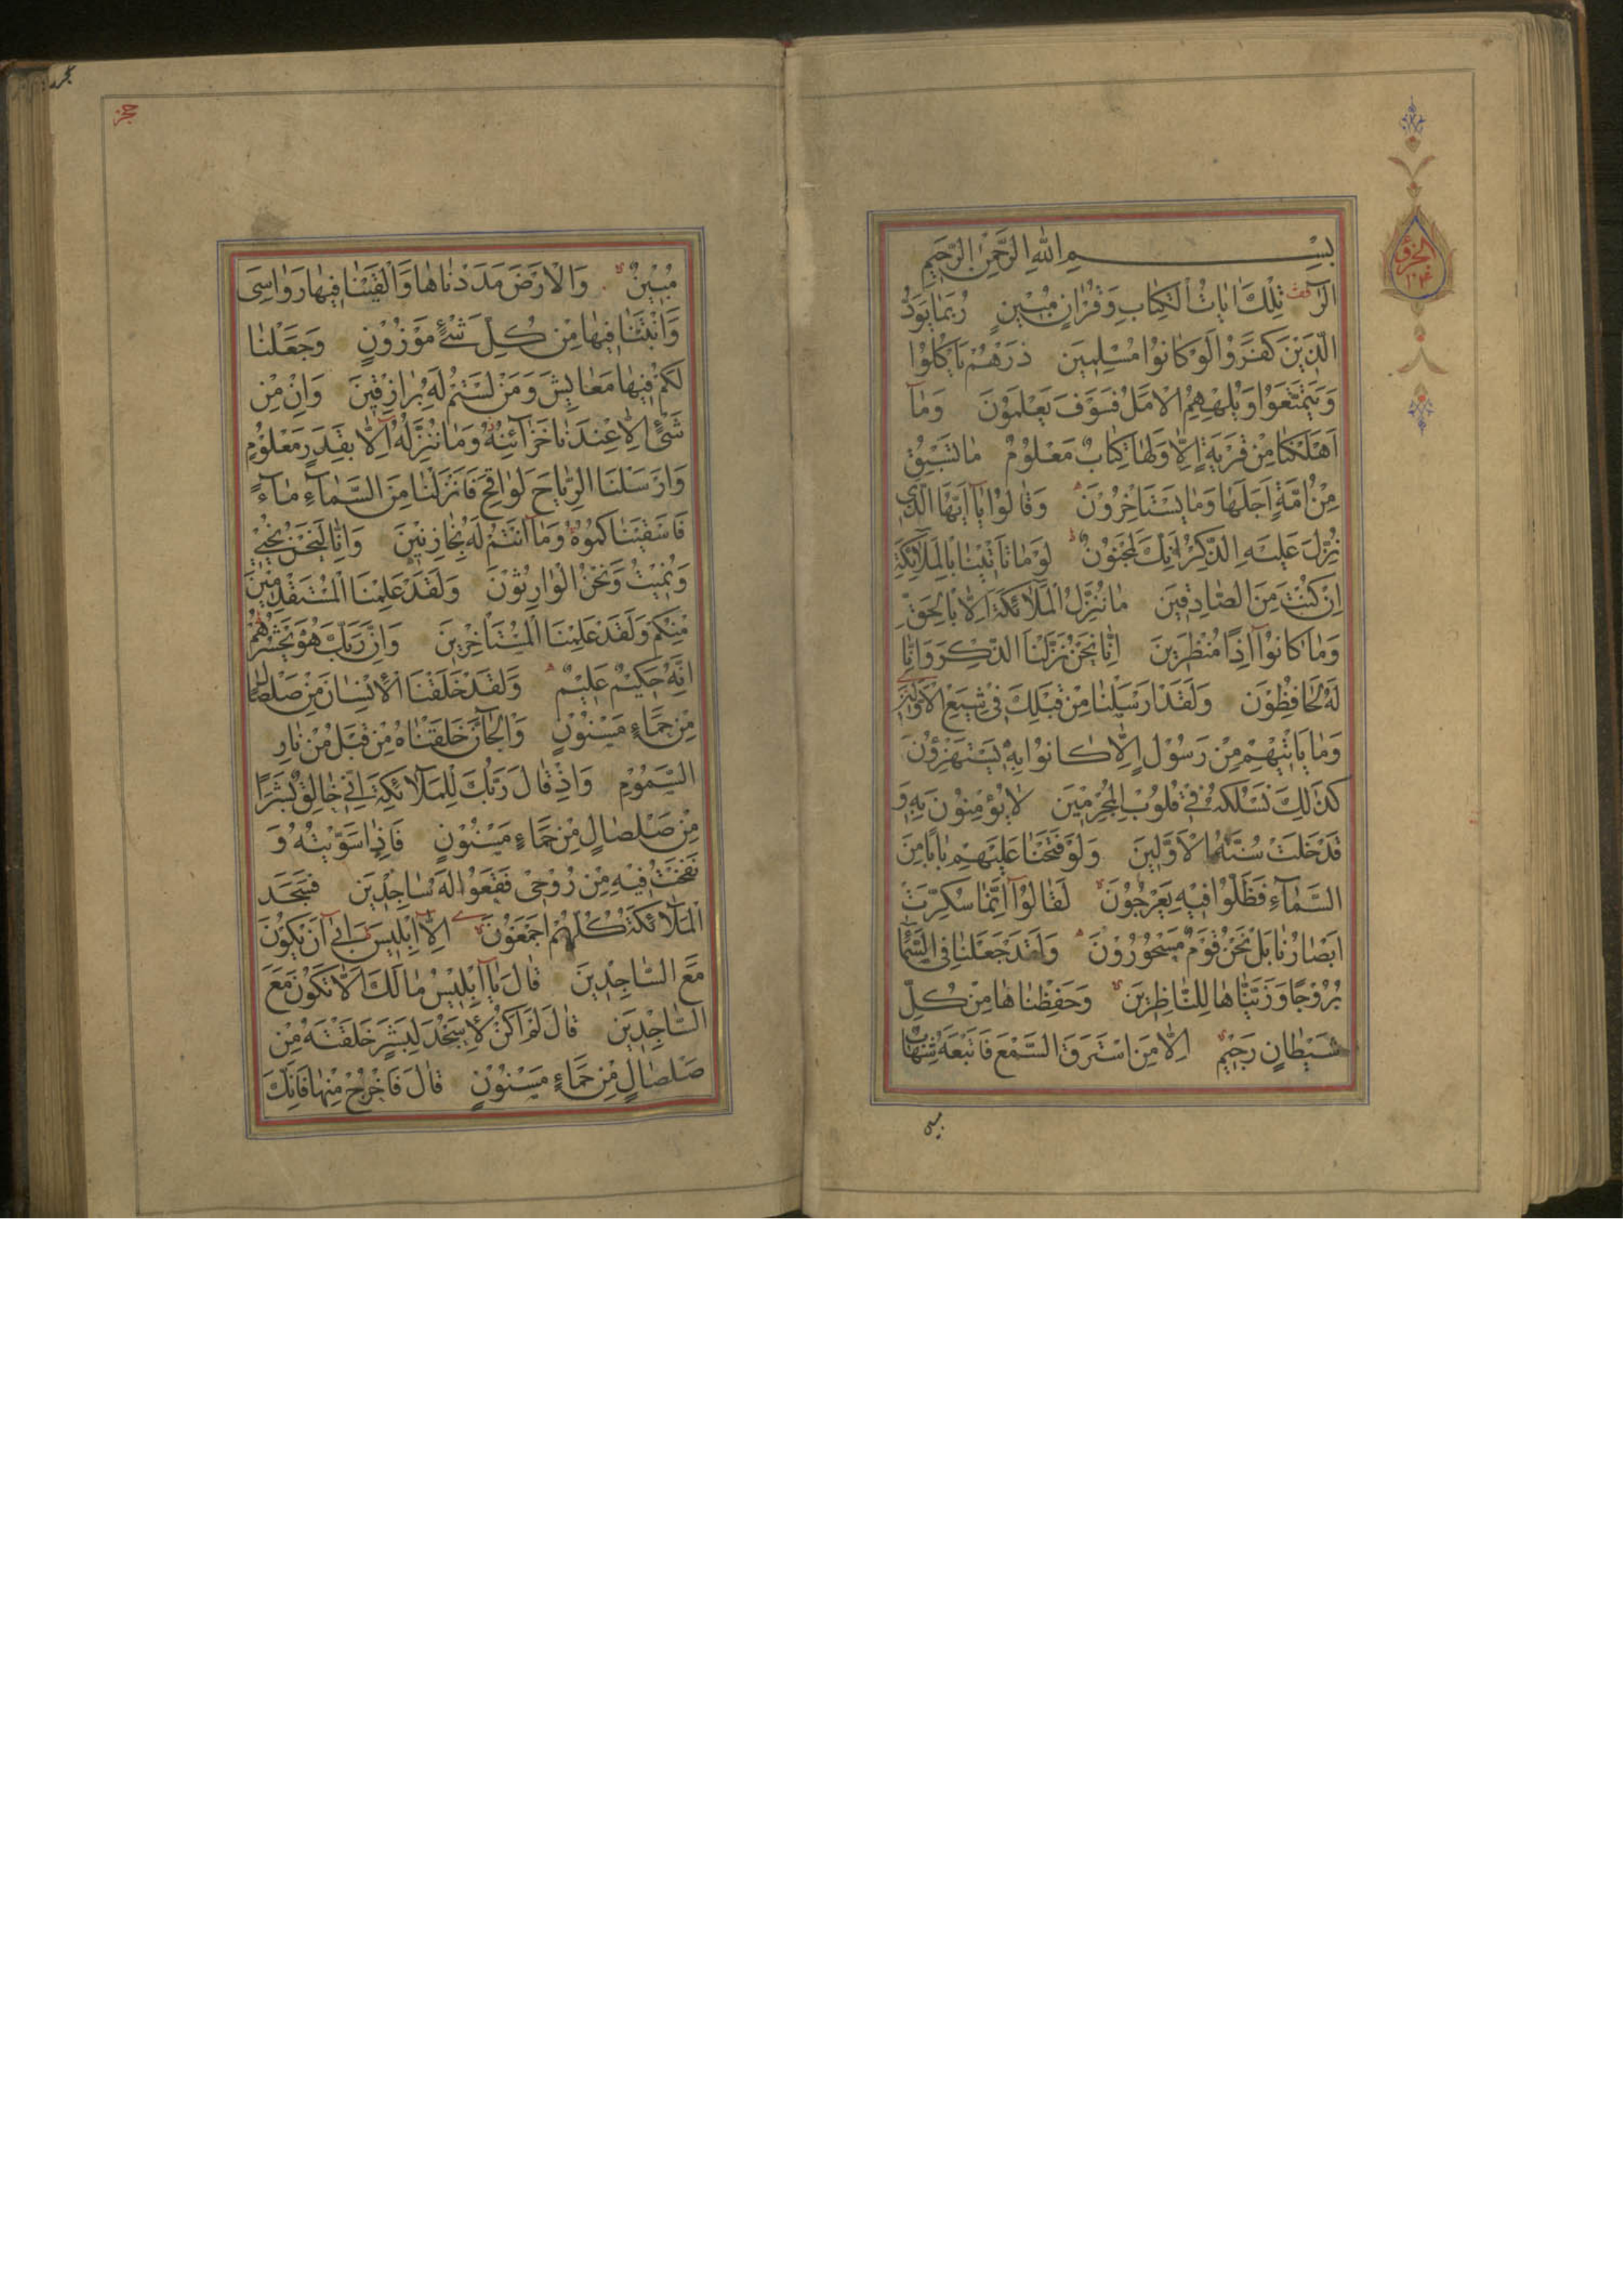 بِسْمِ اللهِ الرَّحْمٰنِ الرَّحِيمِ
الٓرٰ تِلْكَ اٰيَاتُ الْكِتَابِ وَقُرْاٰنٍ مُبِينٍ رُبَمَا يَوَدُّ
الَّذِينَ كَفَرُوا لَوْ كَانُوا مُسْلِمِينَ ذَرْهُمْ يَأْكُلُوا
وَيَتَمَتَّعُوا وَيُلْهِهِمُ الْاَمَلُ فَسَوْفَ يَعْلَمُونَ وَمَآ
اَهْلَكْنَا مِنْ قَرْيَةٍ اِلَّا وَلَهَا كِتَابٌ مَعْلُومٌ مَا تَسْبِقُ
مِنْ اُمَّةٍ اَجَلَهَا وَمَا يَسْتَاْخِرُونَ وَقَالُوا يَآ اَيُّهَا الَّذِي
نُزِّلَ عَلَيْهِ الذِّكْرُ اِنَّكَ لَمَجْنُونٌ لَوْ مَا تَاْتِينَا بِالْمَلَآئِكَةِ
اِنْ كُنْتَ مِنَ الصَّادِقِينَ مَا نُنَزِّلُ الْمَلَآئِكَةَ اِلَّا بِالْحَقِّ
وَمَا كَانُوٓا اِذًا مُنْظَرِينَ اِنَّا نَحْنُ نَزَّلْنَا الذِّكْرَ وَاِنَّا
لَهُ لَحَافِظُونَ وَلَقَدْ اَرْسَلْنَا مِنْ قَبْلِكَ فِي شِيَعِ الْاَوَّلِينَ
وَمَا يَاْتِيهِمْ مِنْ رَسُولٍ اِلَّا كَانُوا بِهِ يَسْتَهْزِؤُنَ
كَذٰلِكَ نَسْلُكُهُ فِي قُلُوبِ الْمُجْرِمِينَ لَا يُؤْمِنُونَ بِهِ وَ
قَدْ خَلَتْ سُنَّةُ الْاَوَّلِينَ وَلَوْ فَتَحْنَا عَلَيْهِمْ بَابًا مِنَ
السَّمَآءِ فَظَلُّوا فِيهِ يَعْرُجُونَ لَقَالُوٓا اِنَّمَا سُكِّرَتْ
اَبْصَارُنَا بَلْ نَحْنُ قَوْمٌ مَسْحُورُونَ وَلَقَدْ جَعَلْنَا فِي السَّمَآءِ
بُرُوجًا وَزَيَّنَّاهَا لِلنَّاظِرِينَ وَحَفِظْنَاهَا مِنْ كُلِّ
شَيْطَانٍ رَجِيمٍ اِلَّا مَنِ اسْتَرَقَ السَّمْعَ فَاَتْبَعَهُ شِهَابٌ
مُبِينٌ وَالْاَرْضَ مَدَدْنَاهَا وَاَلْقَيْنَا فِيهَا رَوَاسِيَ
وَاَنْبَتْنَا فِيهَا مِنْ كُلِّ شَيْءٍ مَوْزُونٍ وَجَعَلْنَا
لَكُمْ فِيهَا مَعَايِشَ وَمَنْ لَسْتُمْ لَهُ بِرَازِقِينَ وَاِنْ مِنْ
شَيْءٍ اِلَّا عِنْدَنَا خَزَآئِنُهُ وَمَا نُنَزِّلُهُ اِلَّا بِقَدَرٍ مَعْلُومٍ
وَاَرْسَلْنَا الرِّيَاحَ لَوَاقِحَ فَاَنْزَلْنَا مِنَ السَّمَآءِ مَآءً
فَاَسْقَيْنَاكُمُوهُ وَمَآ اَنْتُمْ لَهُ بِخَازِنِينَ وَاِنَّا لَنَحْنُ نُحْيِي
وَنُمِيتُ وَنَحْنُ الْوَارِثُونَ وَلَقَدْ عَلِمْنَا الْمُسْتَقْدِمِينَ
مِنْكُمْ وَلَقَدْ عَلِمْنَا الْمُسْتَاْخِرِينَ وَاِنَّ رَبَّكَ هُوَ يَحْشُرُهُمْ
اِنَّهُ حَكِيمٌ عَلِيمٌ وَلَقَدْ خَلَقْنَا الْاِنْسَانَ مِنْ صَلْصَالٍ
مِنْ حَمَاءٍ مَسْنُونٍ وَالْجَآنَّ خَلَقْنَاهُ مِنْ قَبْلُ مِنْ نَارِ
السَّمُومِ وَاِذْ قَالَ رَبُّكَ لِلْمَلَآئِكَةِ اِنِّي خَالِقٌ بَشَرًا
مِنْ صَلْصَالٍ مِنْ حَمَاءٍ مَسْنُونٍ فَاِذَا سَوَّيْتُهُ وَ
نَفَخْتُ فِيهِ مِنْ رُوحِي فَقَعُوا لَهُ سَاجِدِينَ فَسَجَدَ
الْمَلَآئِكَةُ كُلُّهُمْ اَجْمَعُونَ اِلَّآ اِبْلِيسَ اَبٰىٓ اَنْ يَكُونَ
مَعَ السَّاجِدِينَ قَالَ يَآ اِبْلِيسُ مَا لَكَ اَلَّا تَكُونَ مَعَ
السَّاجِدِينَ قَالَ لَمْ اَكُنْ لِاَسْجُدَ لِبَشَرٍ خَلَقْتَهُ مِنْ
صَلْصَالٍ مِنْ حَمَاءٍ مَسْنُونٍ قَالَ فَاخْرُجْ مِنْهَا فَاِنَّكَ